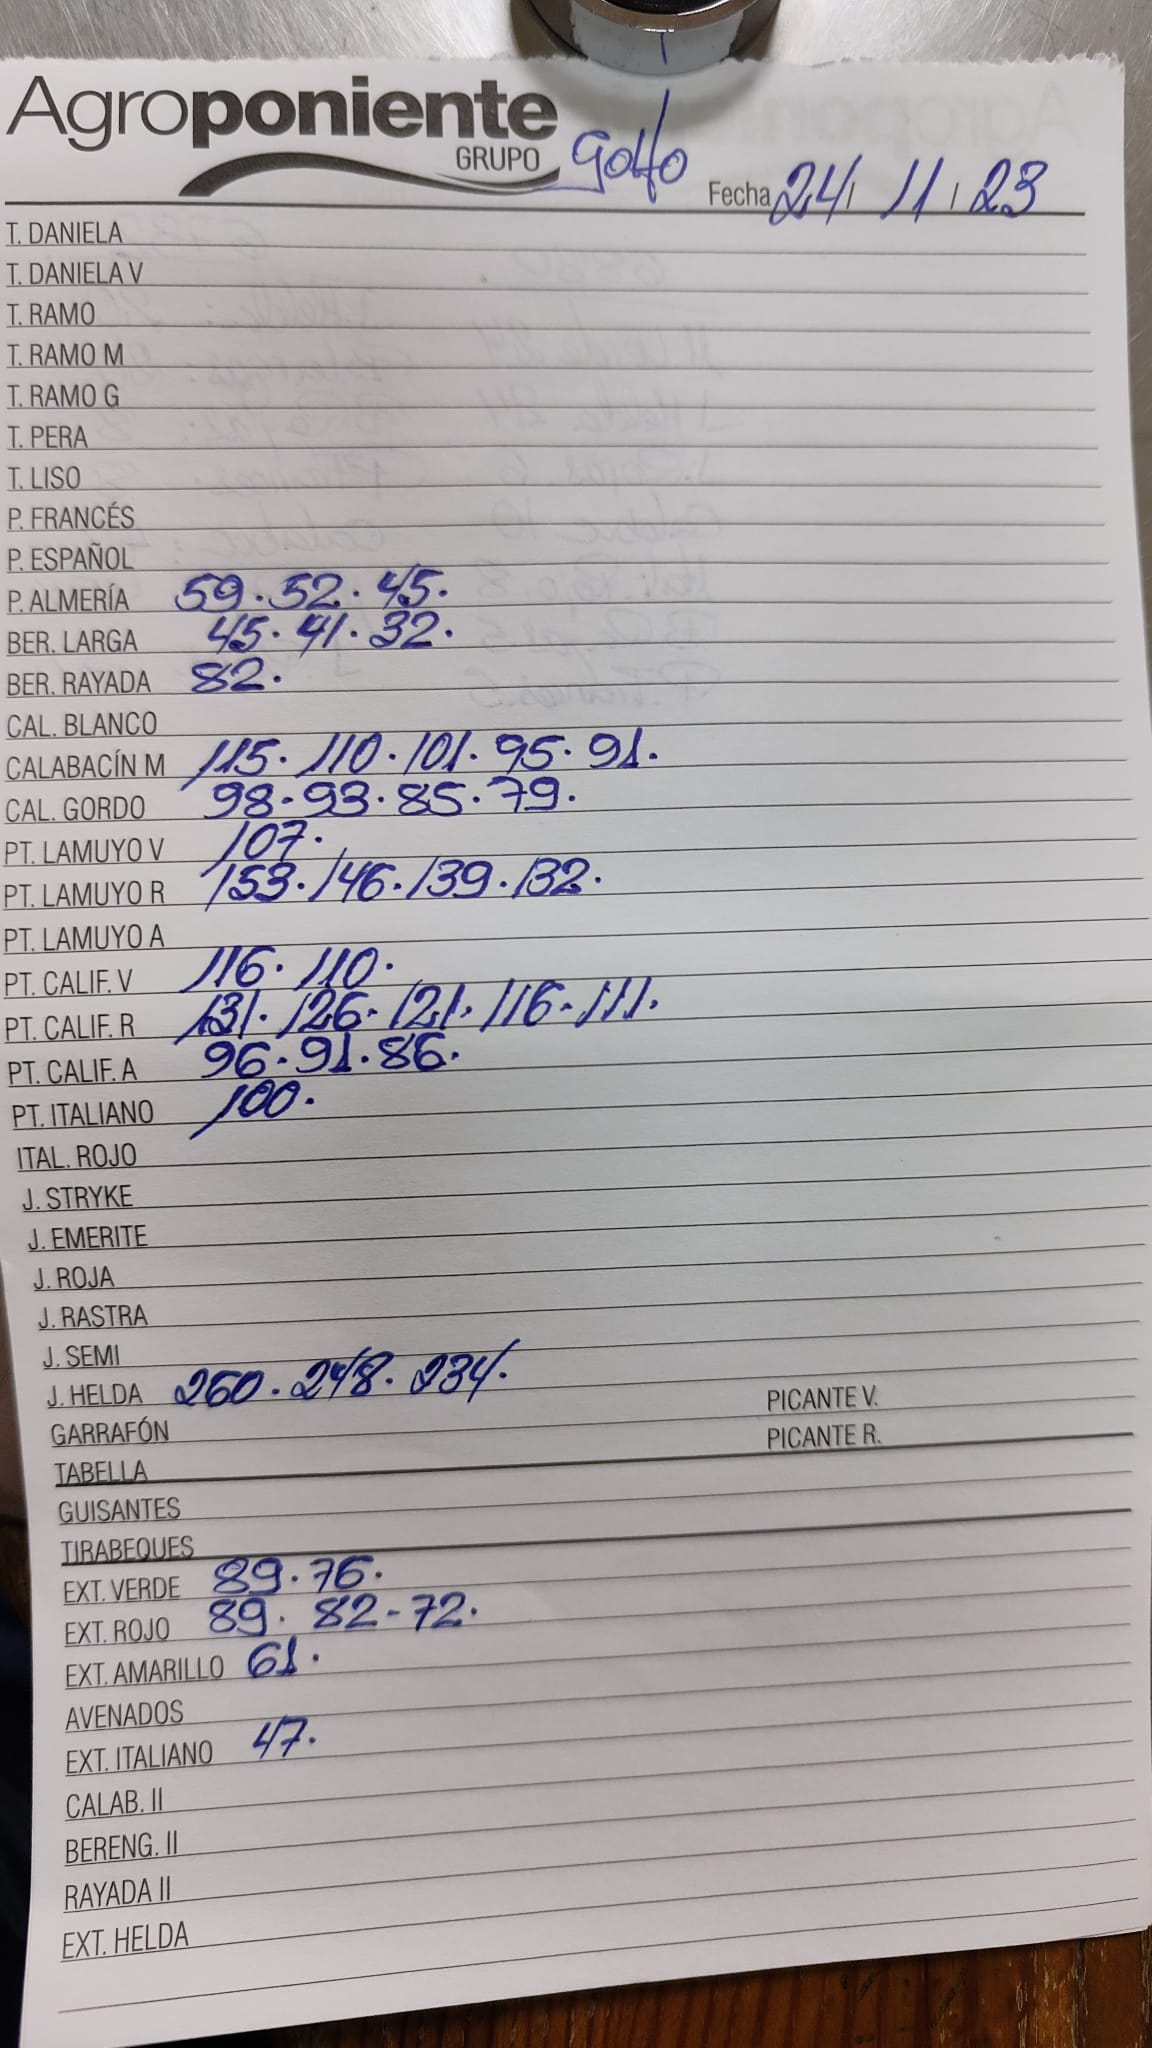 Agroponiente
GRUPO Golfo Fecha 24 / 11 / 23
T. DANIELA
T. DANIELA V
T. RAMO
T. RAMO M
T. RAMO G
T. PERA
T. LISO
P. FRANCÉS
P. ESPAÑOL
P. ALMERÍA 59. 52. 45.
BER. LARGA 45. 41. 32.
BER. RAYADA 82.
CAL. BLANCO
CALABACÍN M 115. 110. 101. 95. 91.
CAL. GORDO 98. 93. 85. 79.
PT. LAMUYO V 107.
PT. LAMUYO R 153. 146. 139. 132.
PT. LAMUYO A
PT. CALIF. V 116. 110.
PT. CALIF. R 131. 126. 121. 116. 111.
PT. CALIF. A 96. 91. 86.
PT. ITALIANO 100.
ITAL. ROJO
J. STRYKE
J. EMERITE
J. ROJA
J. RASTRA
J. SEMI
J. HELDA 260. 248. 234. PICANTE V.
GARRAFÓN PICANTE R.
TABELLA
GUISANTES
TIRABEQUES
EXT. VERDE 89. 76.
EXT. ROJO 89. 82-72.
EXT. AMARILLO 61.
AVENADOS
EXT. ITALIANO 47.
CALAB. II
BERENG. II
RAYADA II
EXT. HELDA